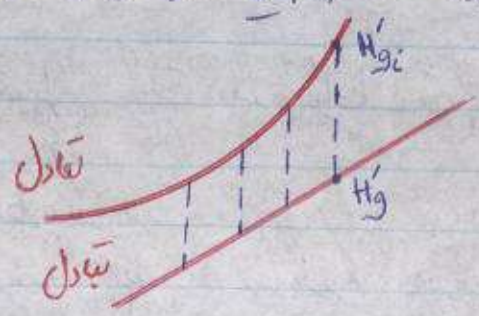 H'gi
تعادل
H'g
تبادل